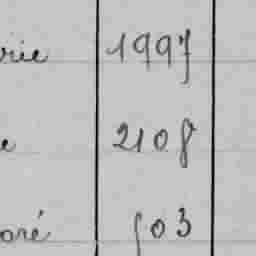 rie 1997
e 2108
oré 503